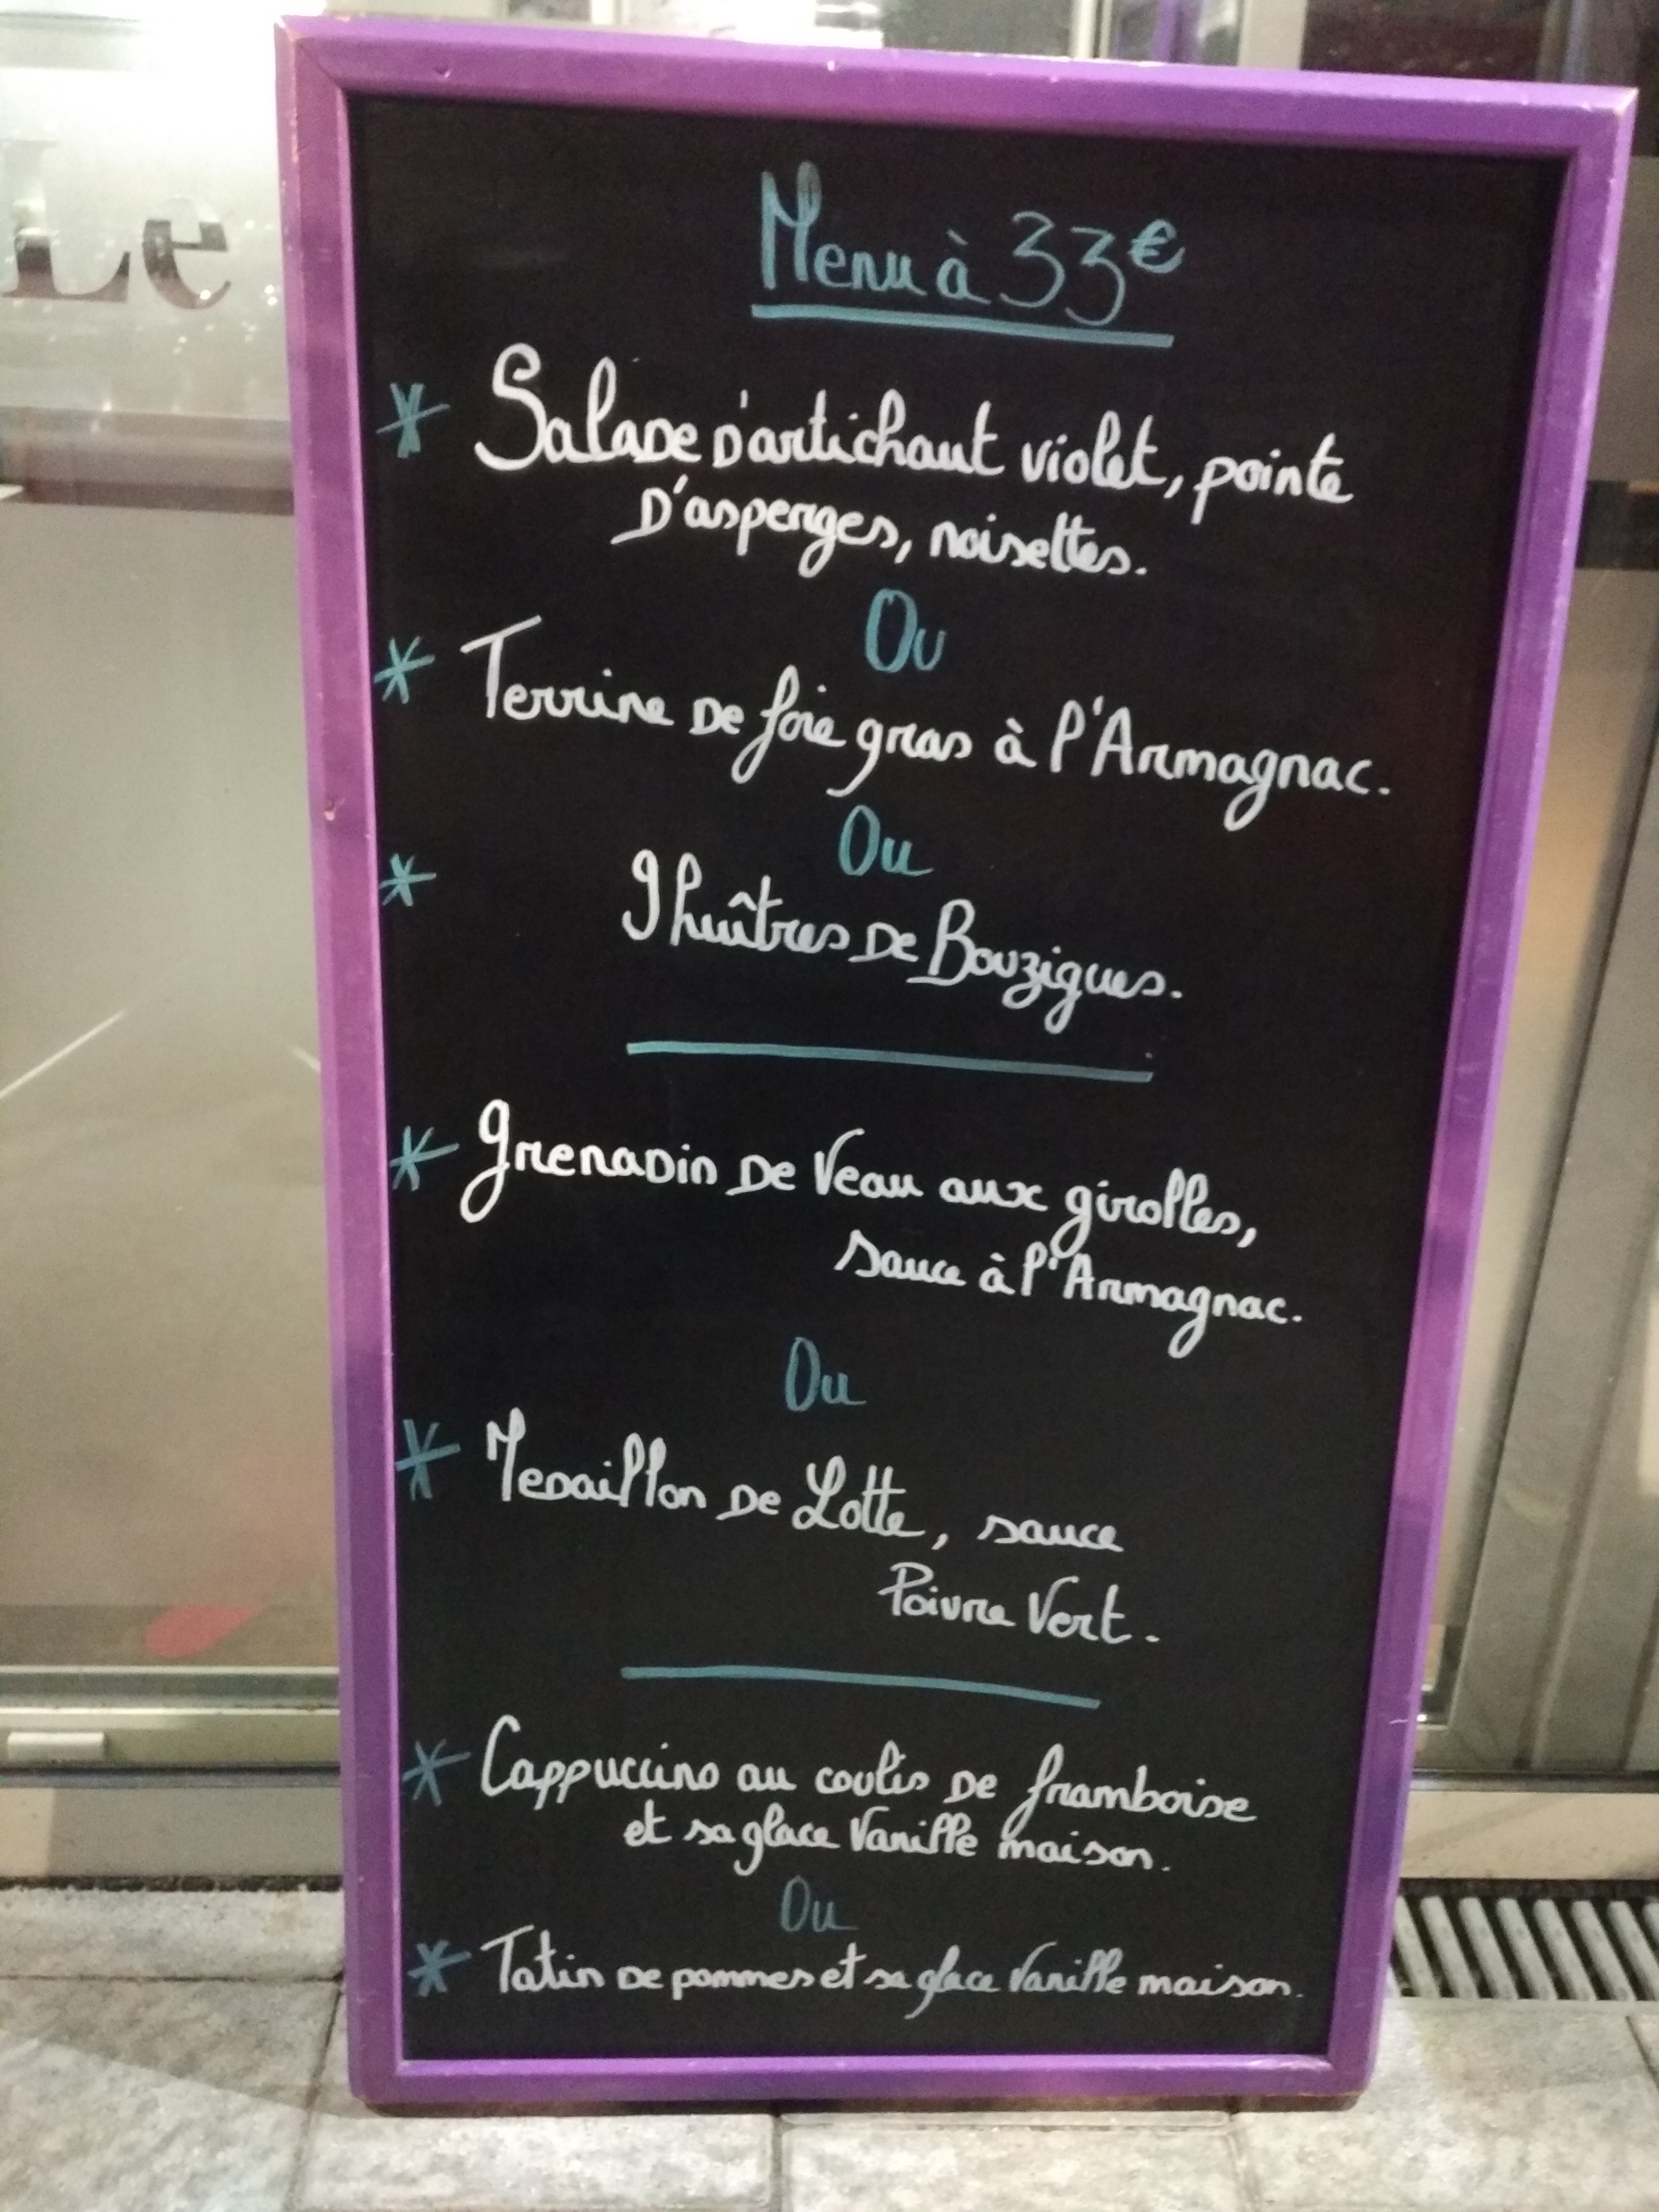 Le
Menu à 33€
* Salade d'artichaut violet, pointe
D'asperges, noisettes.
Ou
* Terrine De foie gras à l'Armagnac.
Ou
* 9 huîtres De Bouzigues.
* Grenadin De Veau aux girolles,
sauce à l'Armagnac.
Ou
* Medaillon De Lotte, sauce
Poivre Vert.
* Cappuccino au coulis De framboise
et sa glace Vanille maison.
Ou
* Tatin De pommes et sa glace Vanille maison.